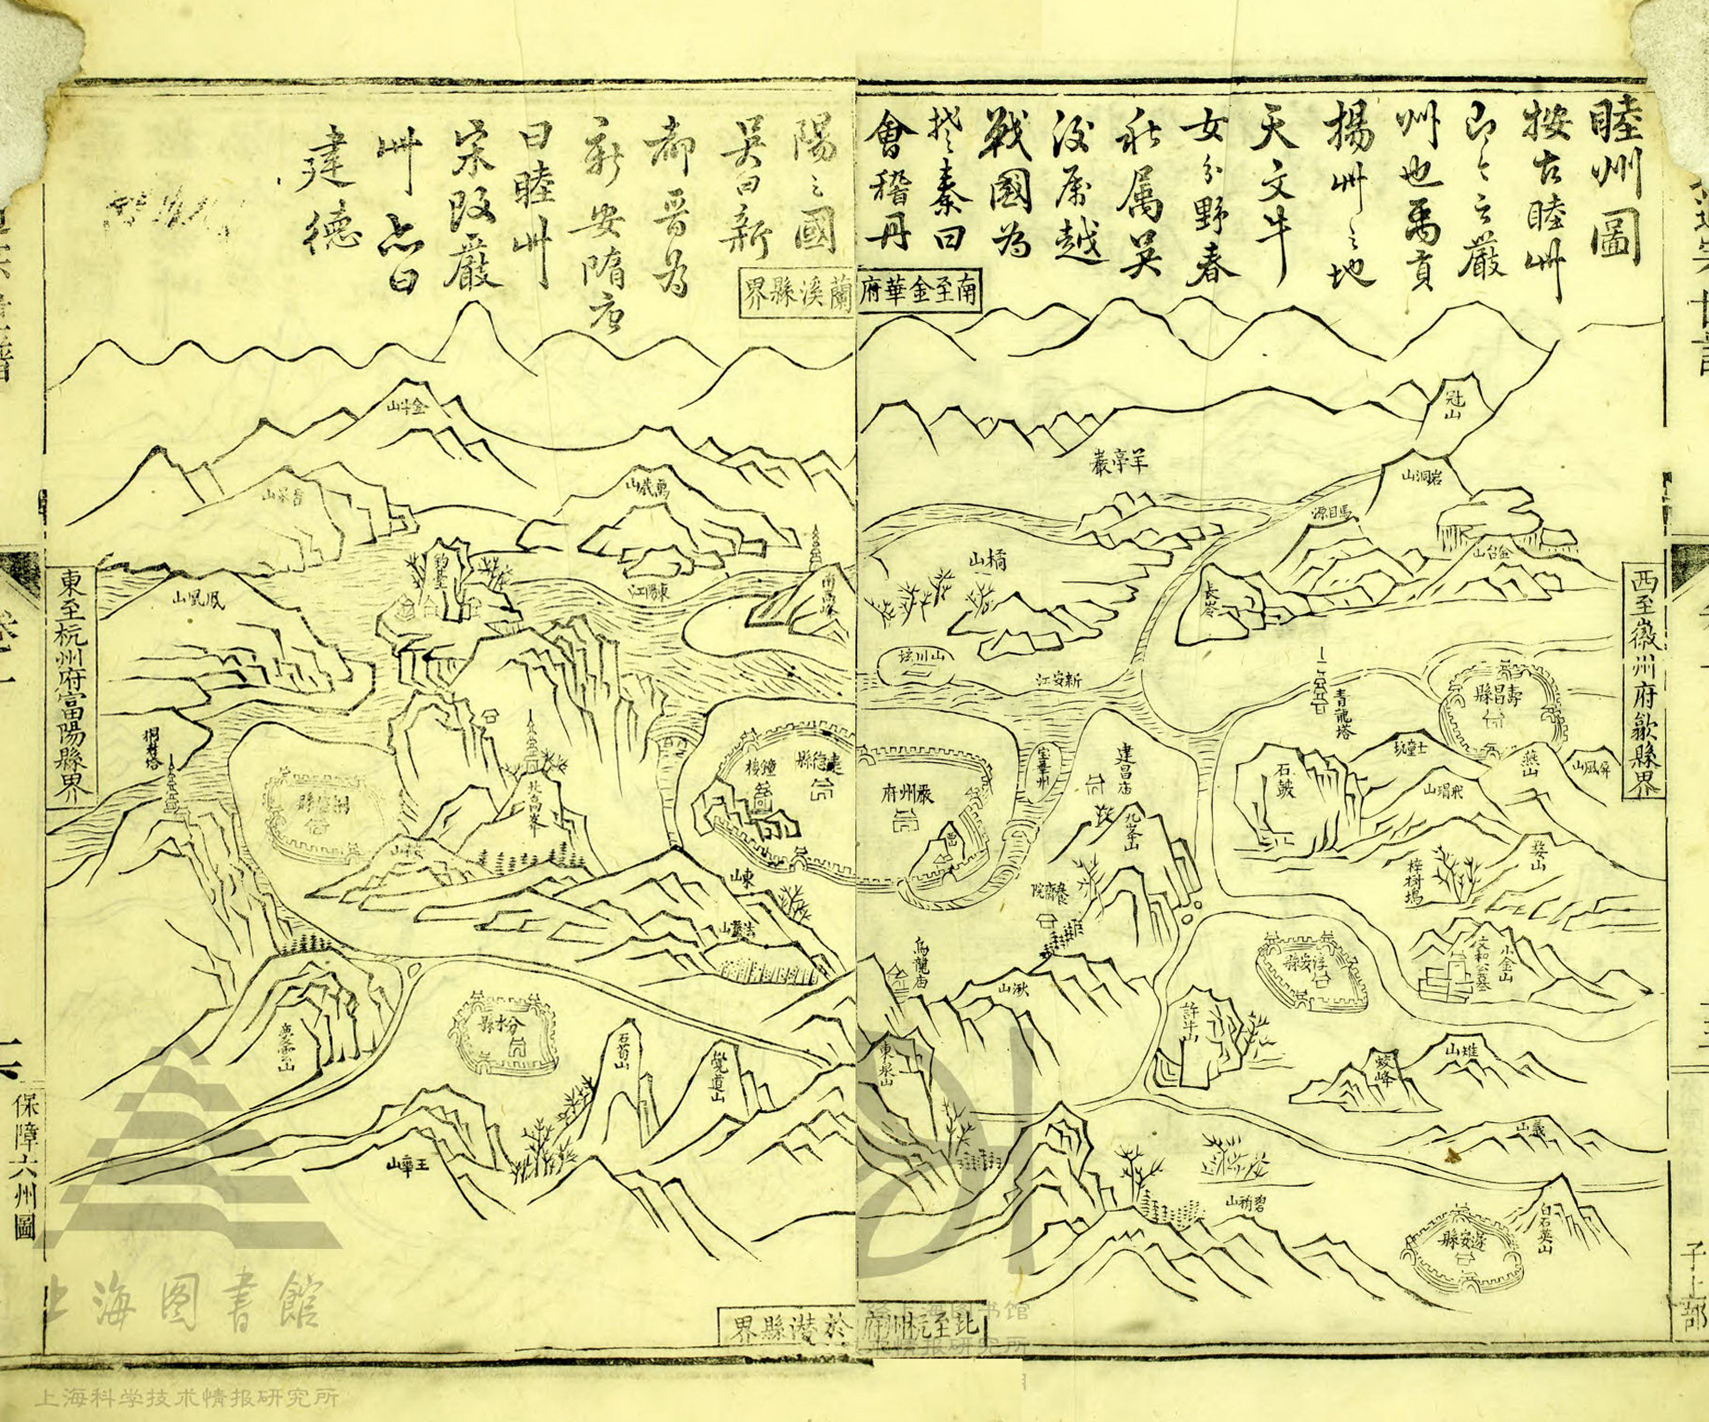 睦州圖
按古睦州
即今之嚴
州也禹貢
揚州之地
天文牛
女分野春
秋属吴
後属越
戦國為
楚秦曰
會稽丹
陽之國
吴曰新
都晋為
新安隋唐
曰睦州
宋改嚴
州亦曰
建德
南至金華府
蘭溪縣界
西至徽州府歙縣界
東至杭州府富陽縣界
北至杭州府
於潜縣界
冠山
岩洞山
羊亭巖
馬目源
金台山
長岺
橘山
山川坛
新安江
壽昌縣
青龍塔
屏風山
燕山
石鼓
建昌店
嚴州府
建德縣
鐘楼
梓樹塢
婺山
小金山
淳安縣
許半山
蛟峰
堆山
義山
白石英山
遂安縣
碧油山
烏龍店
湫山
東泉山
金斗山
萬茂山
東陽江
南高峰
釣臺
鳳凰山
桐君塔
桐廬縣
北高峯
東山
分水縣
石首山
覺道山
王華山
保障六州圖
子上部
上海图書館
上海科学技术情报研究所